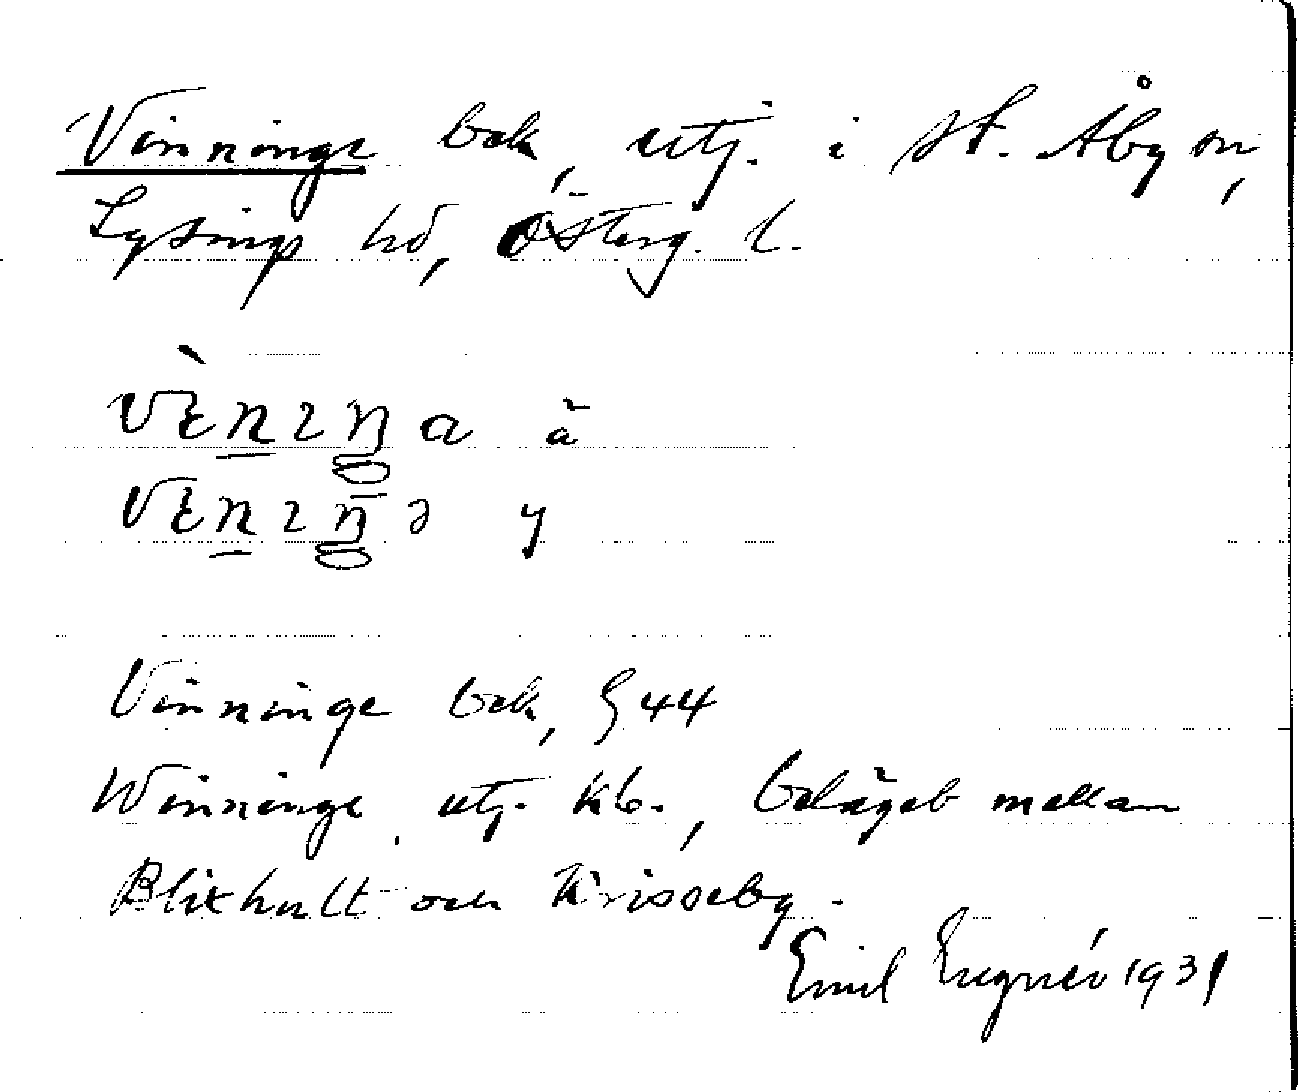 Vinninge bek, utj. i St. Åby sn,
Lysings hd, Österg. l.
vὲnıŋa ä
vεnıŋə y
Vinninge bek, § 44
Winninge, utj. kb., beläget mellan
Blixhult och Krisseby.
Emil 1931